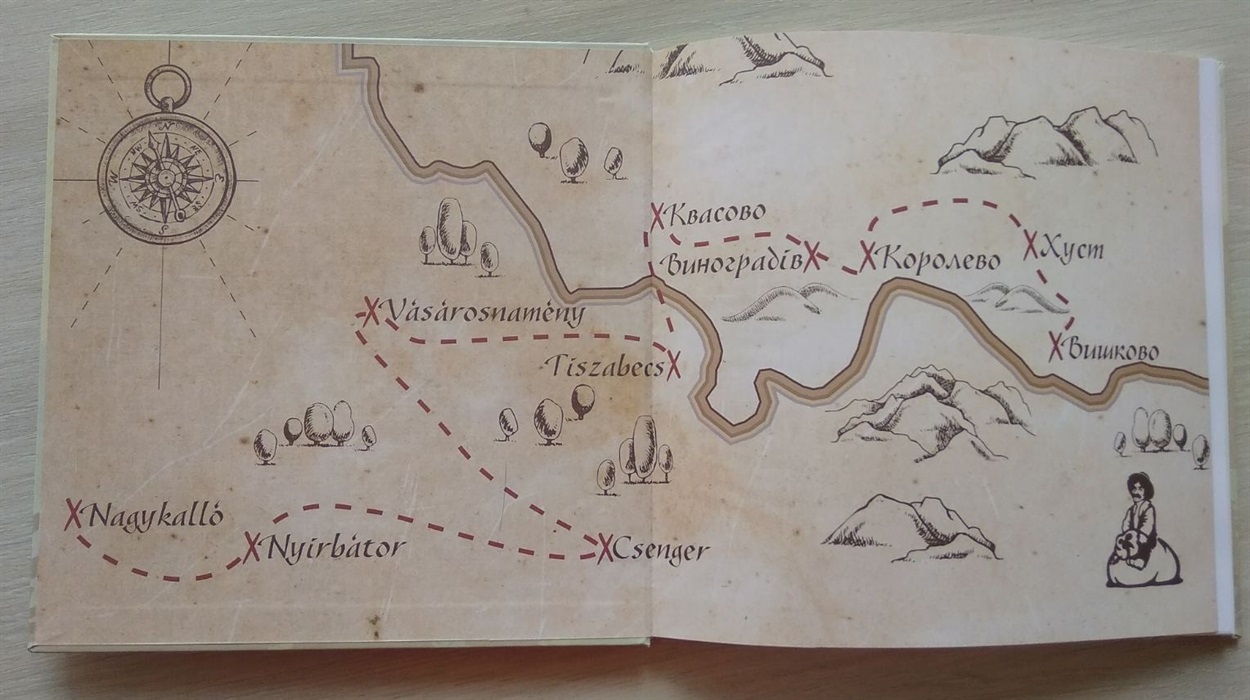 N
E
S
W
Квасово
Виноградів
Королево
Хуст
Vásárosnamény
Tiszabecs
Вишково
Nagykalló
Nyírbátor
Csenger